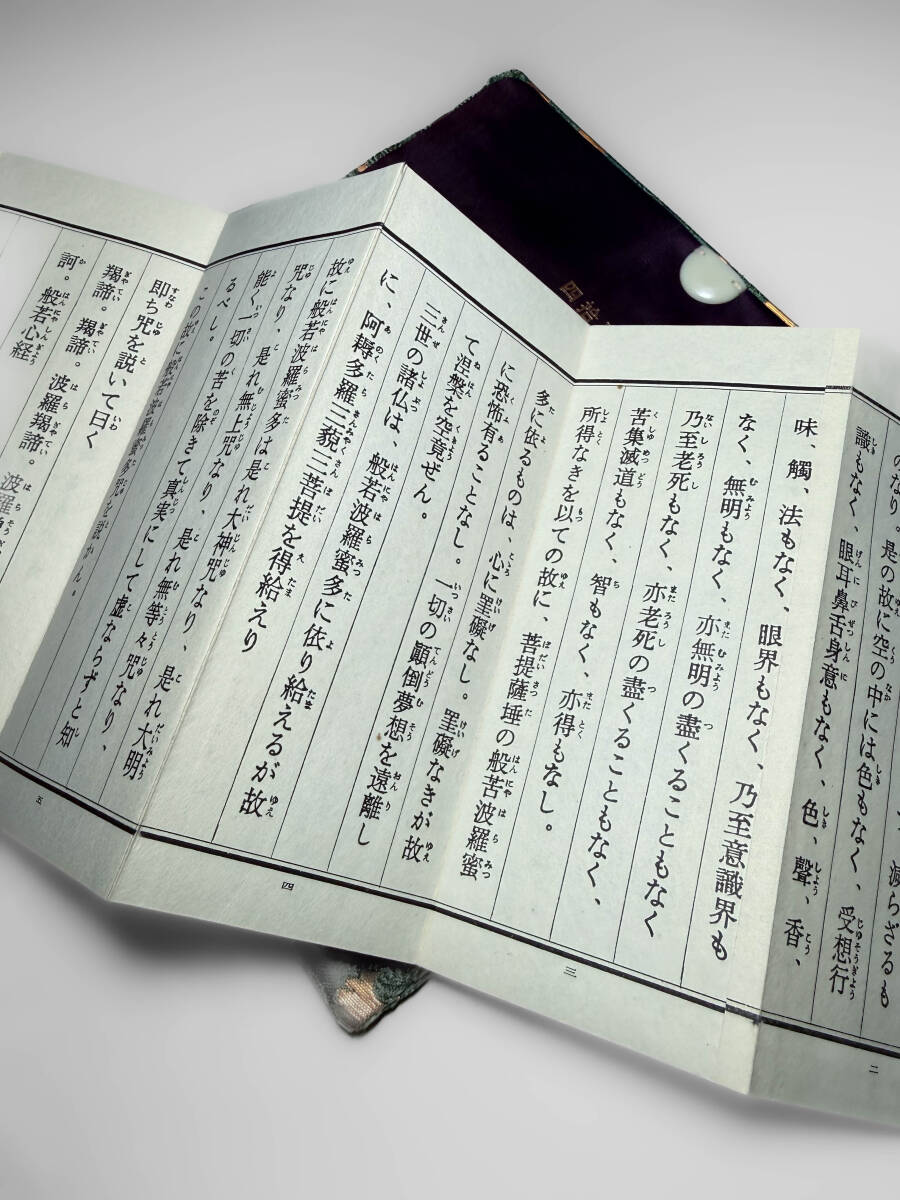 のなり。是の故に空の中には色もなく、受想行
減らざるも
識もなく、眼耳鼻舌身意もなく、色、聲、香、
味、觸、法もなく、眼界もなく、乃至意識界も
なく、無明もなく、亦無明の盡くることもなく
乃至老死もなく、亦老死の盡くることもなく、
苦集滅道もなく、智もなく、亦得もなし。
所得なきを以ての故に、菩提薩埵の般苦波羅蜜
多に依るものは、心に罣礙なし。罣礙なきが故
に恐怖有ることなし。一切の顚倒夢想を遠離し
て涅槃を空竟せん。
三世の諸仏は、般若波羅蜜多に依り給えるが故
に、阿耨多羅三藐三菩提を得給えり
故に般若波羅蜜多は是れ大神咒なり、是れ大明
咒なり、是れ無上咒なり、是れ無等々咒なり、
能く一切の苦を除きて真実にして虚ならずと知
るべし。
この故に般若波羅蜜多咒を説かん。
即ち咒を説いて曰く
羯諦。羯諦。波羅羯諦。波羅
訶。般若心経
二
三
四
五
四